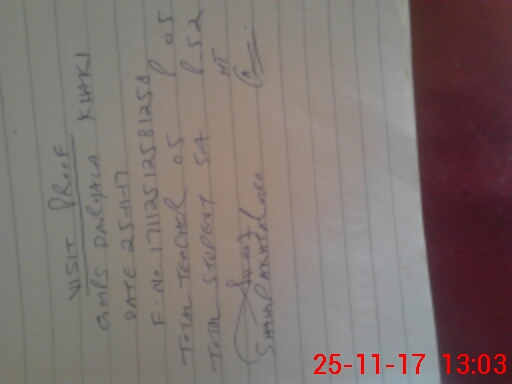 VISIT PROOF
GMPS DARYALA KHAKI
DATE 25-11-17
F. No. 17112512581258
TOTAL TEACHER 05 P 05
TOTAL STUDENT 54 P. 52
HT
25-11-17 13:03